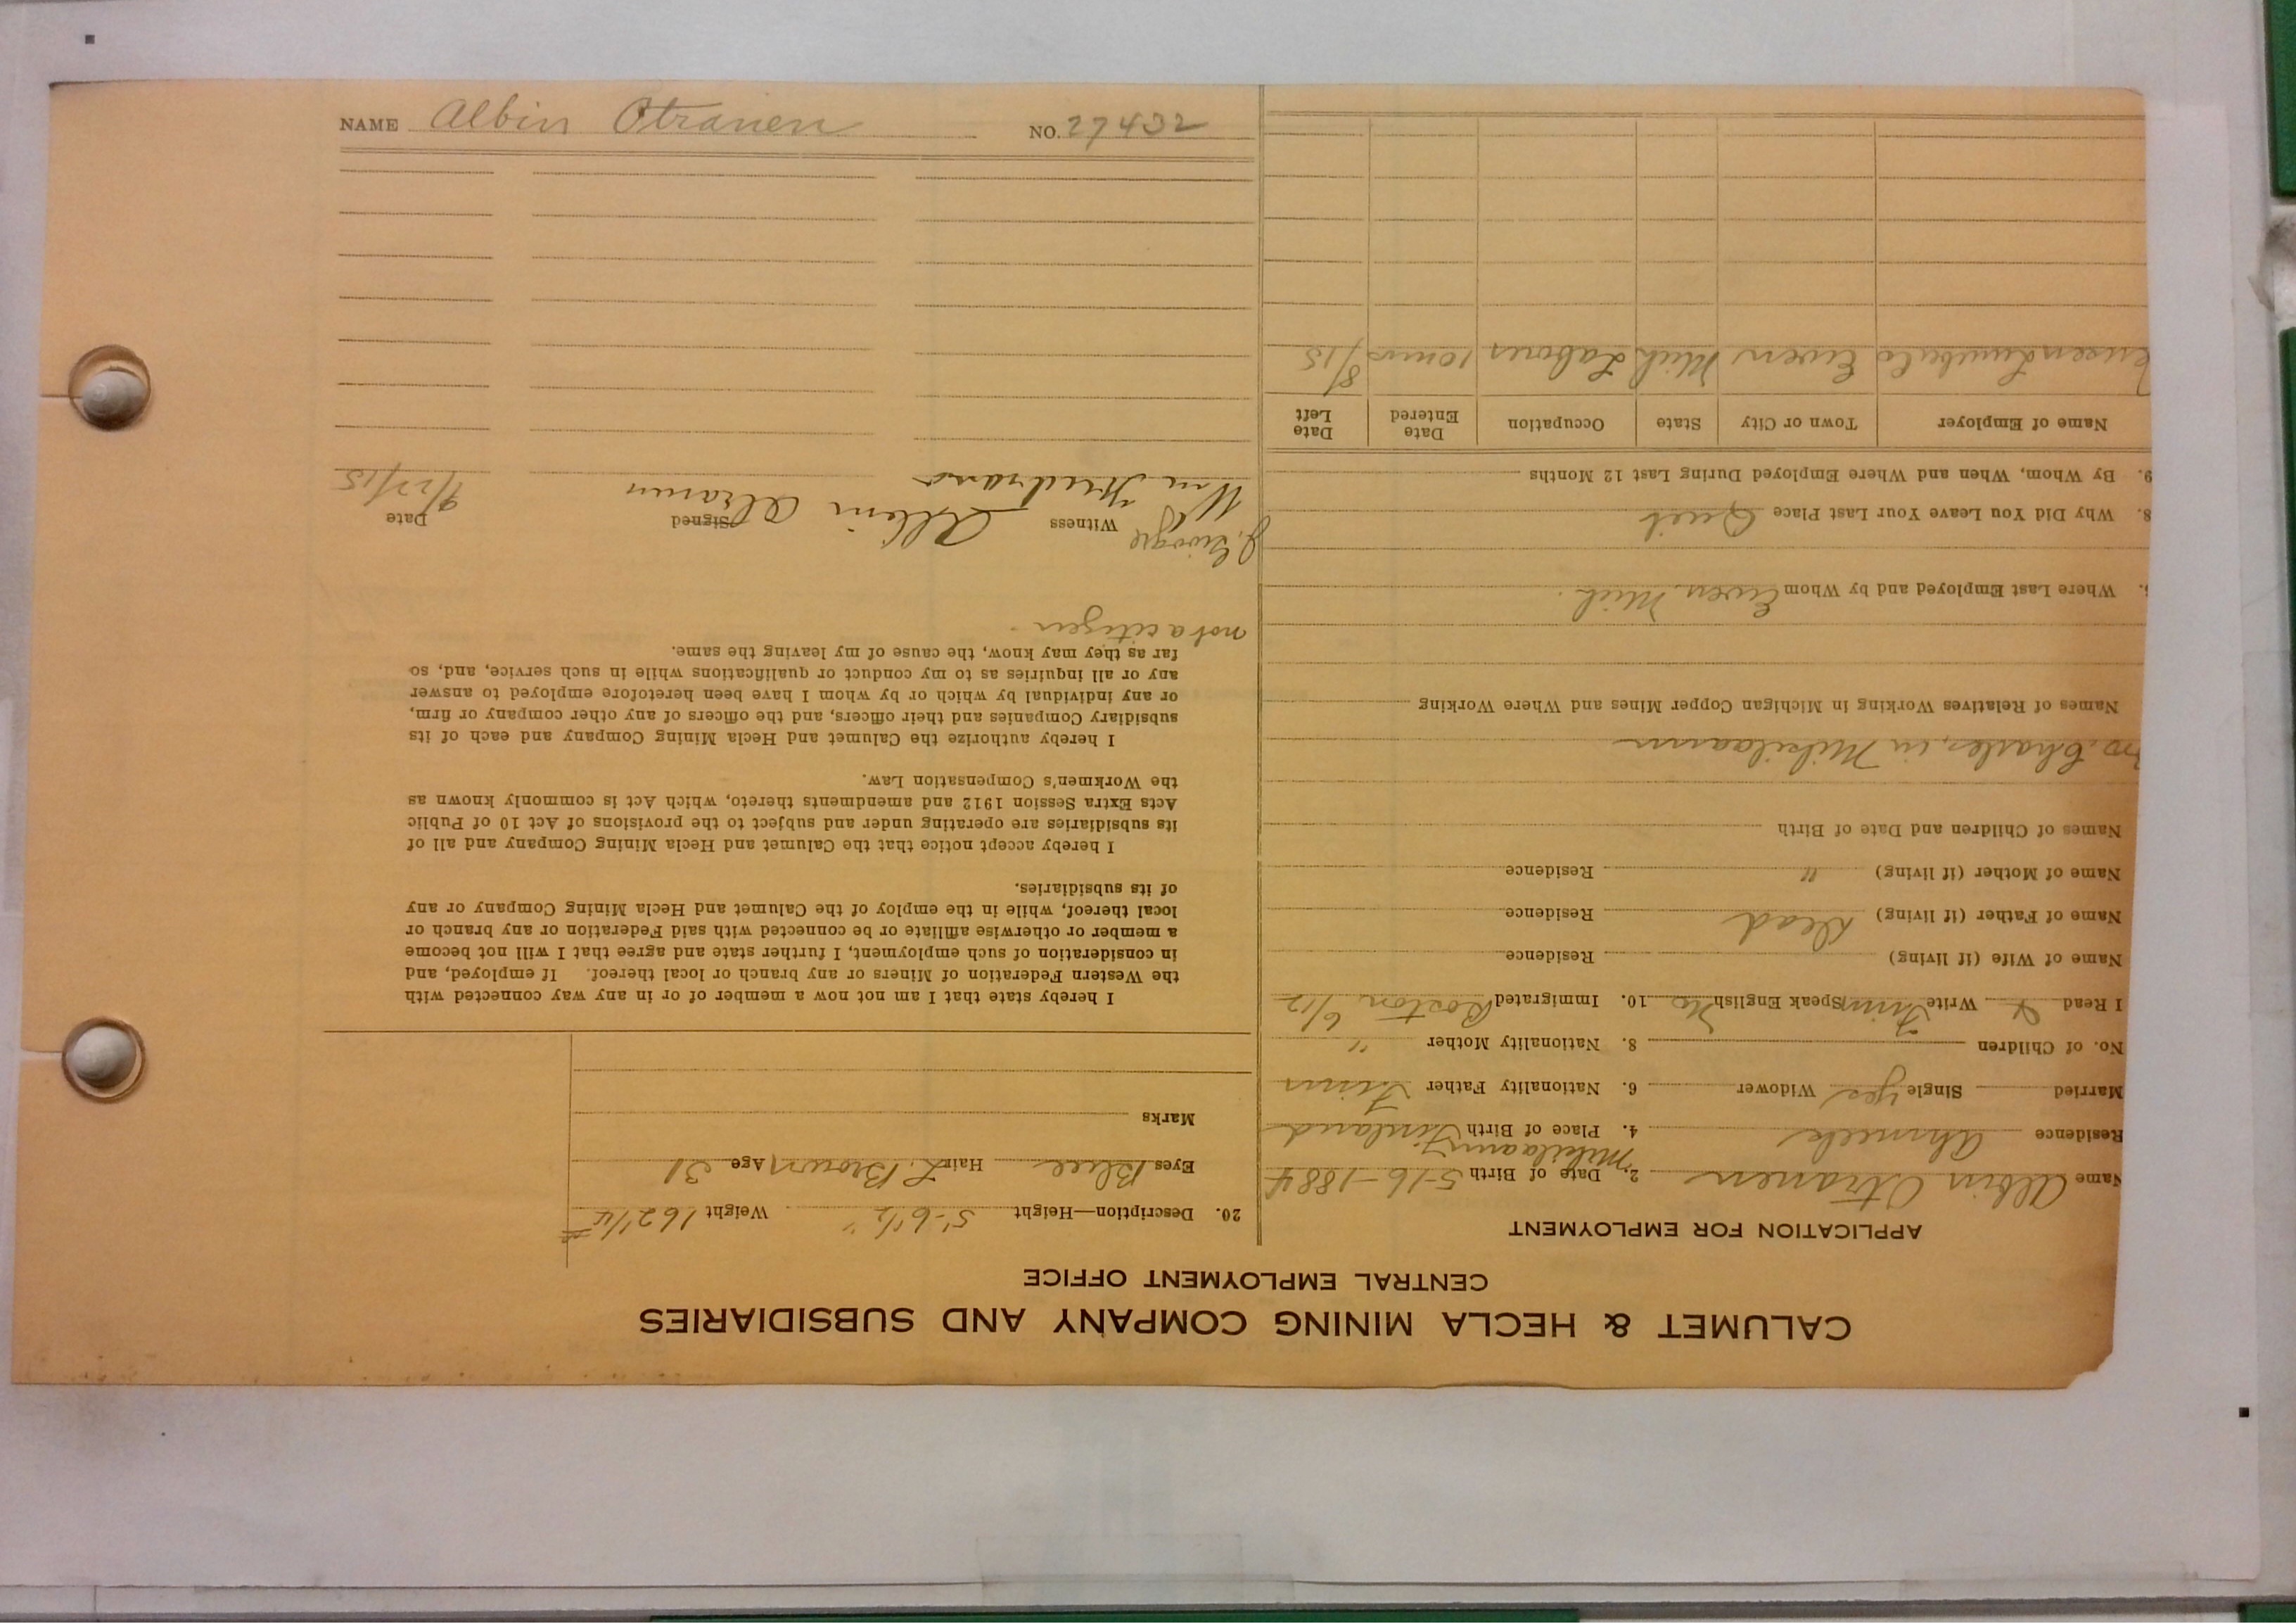 NAME Albin Otranen NO. 27432
CALUMET & HECLA MINING COMPANY AND SUBSIDIARIES
CENTRAL EMPLOYMENT OFFICE
APPLICATION FOR EMPLOYMENT
Name Albin Otranen 2. Date of Birth 5-16-1884
Residence Ahmeek 4. Place of Birth Finland
Married Single yes Widower 6. Nationality Father Finn
No. of Children 8. Nationality Mother "
I Read Write Finn Speak English No 10. Immigrated Boston 6/12
Name of Wife (if living) Residence
Name of Father (if living) Dead Residence
Name of Mother (if living) " Residence
Names of Children and Date of Birth
Bro. Charles, in
Names of Relatives Working in Michigan Copper Mines and Where Working
Where Last Employed and by Whom Ewen, Mich.
8. Why Did You Leave Your Last Place Quit
9. By Whom, When and Where Employed During Last 12 Months
Name of Employer Town or City State Occupation Date Entered Date Left
Ewen Mich Labour 10 8/15
20. Description—Height 5'-6 1/2" Weight 162
Eyes Blue Hair L. Brown Age 31
Marks
I hereby state that I am not now a member of or in any way connected with
the Western Federation of Miners or any branch or local thereof. If employed, and
in consideration of such employment, I further state and agree that I will not become
a member or otherwise affiliate or be connected with said Federation or any branch or
local thereof, while in the employ of the Calumet and Hecla Mining Company or any
of its subsidiaries.
I hereby accept notice that the Calumet and Hecla Mining Company and all of
its subsidiaries are operating under and subject to the provisions of Act 10 of Public
Acts Extra Session 1912 and amendments thereto, which Act is commonly known as
the Workmen's Compensation Law.
I hereby authorize the Calumet and Hecla Mining Company and each of its
subsidiary Companies and their officers, and the officers of any other company or firm,
or any individual by which or by whom I have been heretofore employed to answer
any or all inquiries as to my conduct or qualifications while in such service, and, so
far as they may know, the cause of my leaving the same.
not a citizen.
Witness Signed Date
Wm Albin 9/27/15